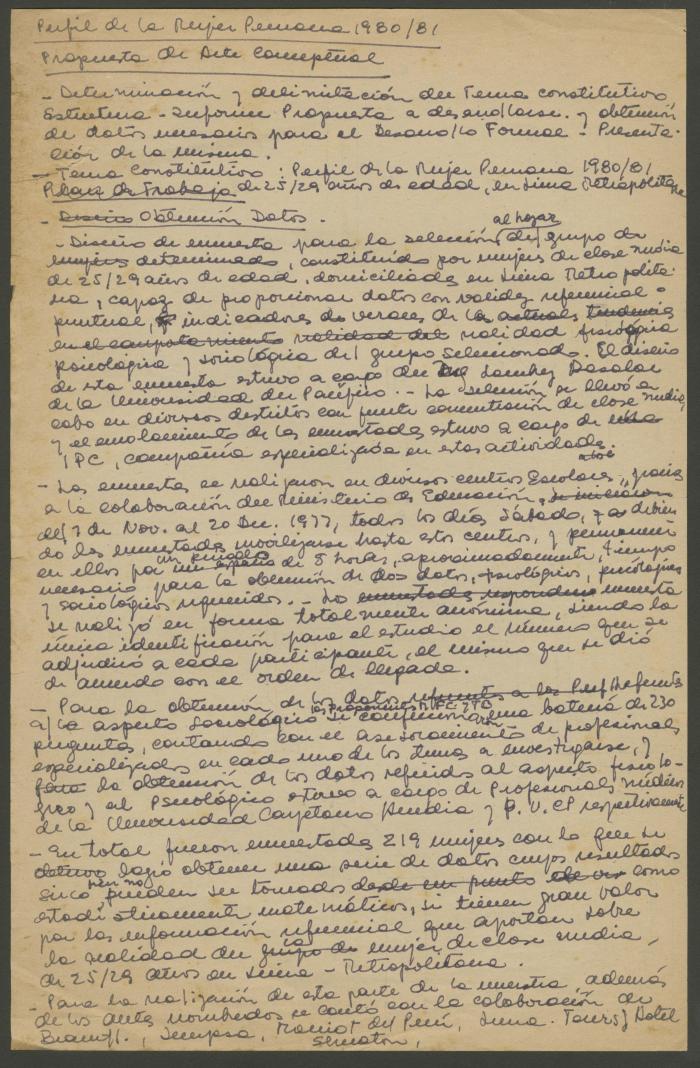 Perfil de la Mujer Peruana 1980/81
Propuesta de Arte Conceptual
- Determinación y delimitación del Tema constitutivo
Estructura - Informe Propuesta a desarrollarse. y obtención
de datos necesarios para el Desarrollo Formal - Presenta-
ción de la misma.
- Tema Constitutivo : Perfil de la Mujer Peruana 1980/81
Plan de Trabajo de 25/29 años de edad, en Lima Metropolitana
- Diseño Obtención Datos.
al hogar
- Diseño de encuesta para la selección del grupo de
mujeres determinado, constituido por mujeres de clase media
de 25/29 años de edad, domiciliadas en Lima Metropolita-
na, capaz de proporcionar datos con validez referencial -
puntual, indicadores veraces de la actuales tendencia
en el comportamiento realidad del realidad fisiológica
psicológica y sociológica del grupo seleccionado. El diseño
de esta encuesta estuvo a cargo de Sanchez Dasalar
de la Universidad del Pacífico. - La selección se llevó a
cabo en diversos distritos con fuerte concentración de clase media,
y el enrolamiento de las encuestadas estuvo a cargo de
IPC, compañía especializada en estas actividades.
- Las encuestas se realizaron en diversos centros Escolares, gracias
a la colaboración del Ministerio de Educación, se iniciaron
del 7 de Nov. al 20 Dic. 1977, todos los días Sábado, debien
do las encuestadas movilizarse hasta estos centros, y permanecer
un periodo
en ellos por un espacio de 8 horas, aproximadamente, tiempo
necesario para la obtención de los datos, fisiológicos, psicológicos
y sociológicos requeridos. - La encuestada respondieron encuesta
se realizó en forma totalmente anónima, siendo la
única identificación para el estudio el número que se
adjudicó a cada participante, el mismo que se dió
de acuerdo con el orden de llegada.
- Para la obtención de los datos referentes a los Perf
a/la aspecto Sociológico se confeccionaron una batería de 230
preguntas, contando con el asesoramiento de profesionales
especializados en cada uno de los temas a investigarse, y
para la obtención de los datos referidos al aspecto fisioló-
gico y el Psicológico estuvo a cargo de Profesionales médicos
de la Universidad Cayetano Heredia y P.U.CP respectivamente
- En total fueron encuestadas 219 mujeres con la que se
obtuvo logró obtener una serie de datos cuyos resultados
si no pueden ser tomados desde un punto como
estadísticamente matemáticos, si tienen gran valor
por las información referencial que aportan sobre
la realidad del grupo de mujer de clase media,
de 25/29 años en Lima - Metropolitana.
- Para la realización de esta parte de la muestra, además
de los antes nombrados se contó con la colaboración de
Braniff., Sempsa, del Perú, Lima Tours y Hotel
Sheraton,